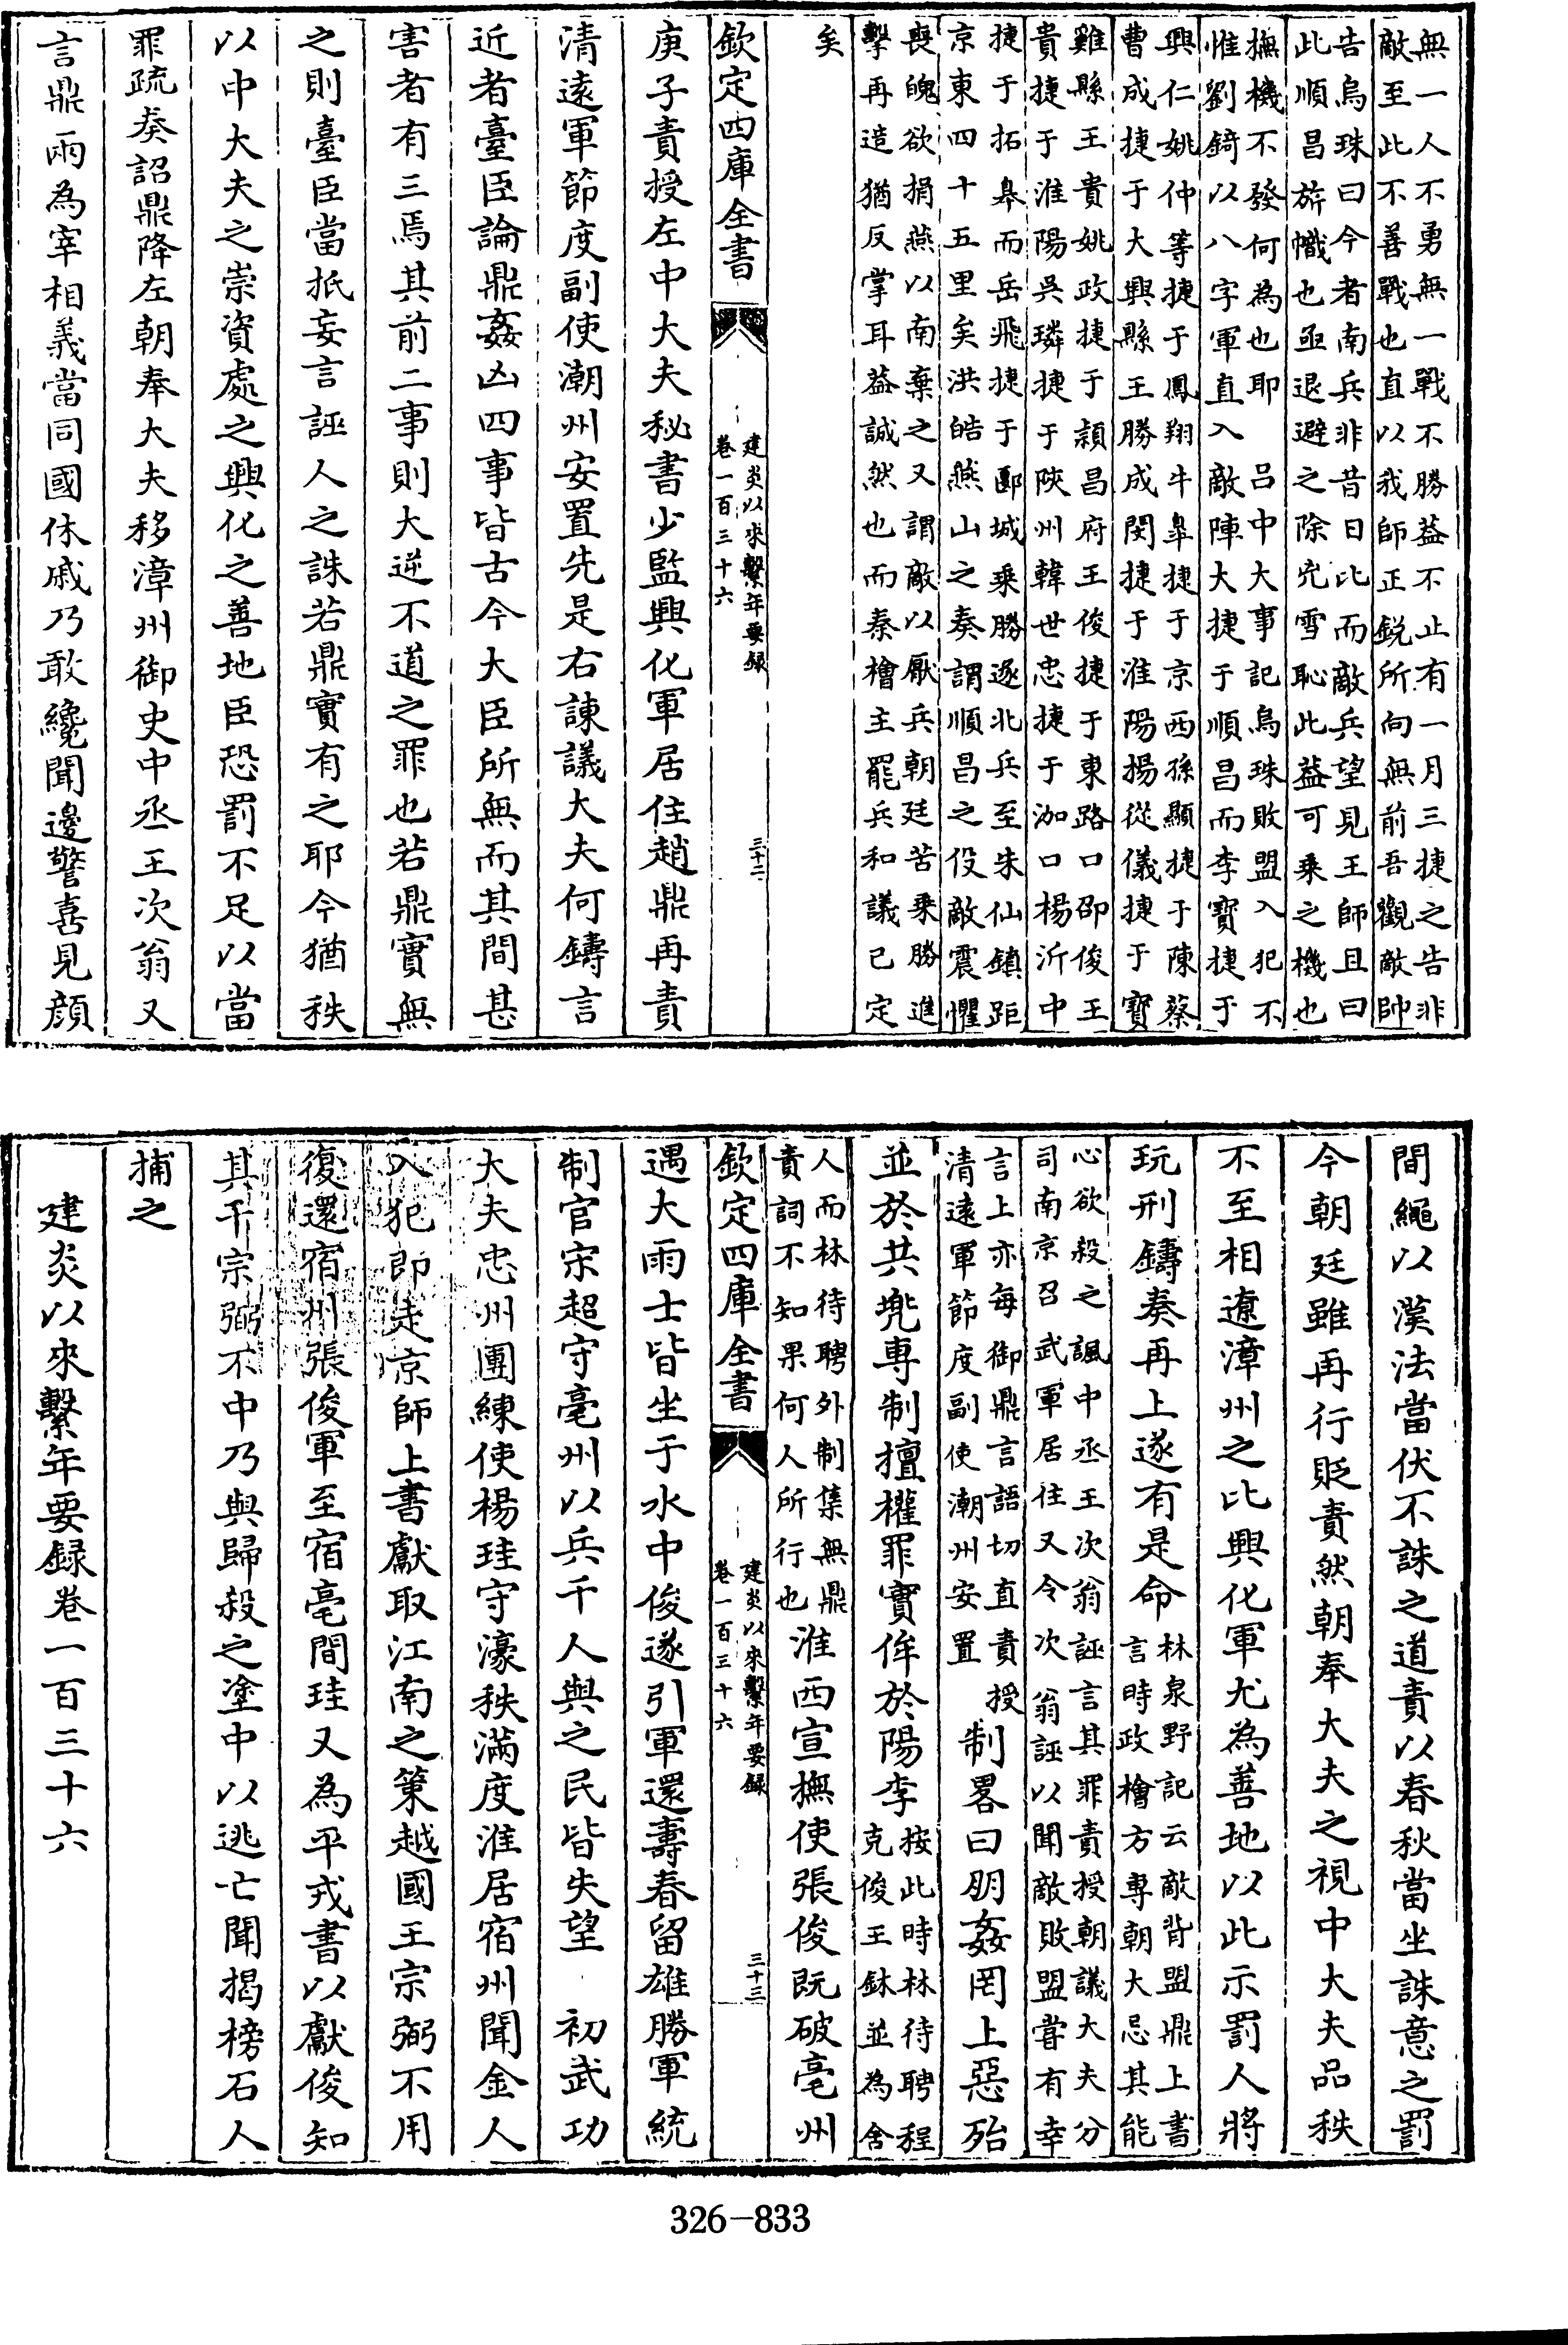 無一人不勇無一戰不勝益不止有一月三捷之告非
敵至此不善戰也直以我師正銳所向無前吾觀敵帥
告烏珠曰今者南兵非昔日比而敵兵望見王師且曰
此順昌旂幟也亟退避之除兇雪恥此益可乗之機也
撫機不發何為也耶　呂中大事記烏珠敗盟入犯不
惟劉錡以八字軍直入敵陣大捷于順昌而李寳捷于
興仁姚仲等捷于鳳翔牛臯捷于京西孫顯捷于陳蔡
曹成捷于大興縣王勝成閔捷于淮陽揚從儀捷于寳
雞縣王貴姚政捷于潁昌府王俊捷于東路口邵俊王
貴捷于淮陽吳璘捷于陜州韓世忠捷于泇口楊沂中
捷于拓臯而岳飛捷于郾城乗勝逐北兵至朱仙鎮距
京東四十五里矣洪皓燕山之奏謂順昌之役敵震懼
喪魄欲捐燕以南棄之又謂敵以厭兵朝廷苦乗勝進
擊再造猶反掌耳益誠然也而秦檜主罷兵和議已定
矣
欽定四庫全書
建炎以來繫年要録
卷一百三十六
三十二
庚子責授左中大夫秘書少監興化軍居住趙鼎再責
清逺軍節度副使潮州安置先是右諫議大夫何鑄言
近者臺臣論鼎姦凶四事皆古今大臣所無而其間甚
害者有三焉其前二事則大逆不道之罪也若鼎實無
之則臺臣當抵妄言誣人之誅若鼎實有之耶今猶秩
以中大夫之崇資處之興化之善地臣恐罰不足以當
罪疏奏詔鼎降左朝奉大夫移漳州御史中丞王次翁又
言鼎兩為宰相義當同國休戚乃敢纔聞邊警喜見顔
間繩以漢法當伏不誅之道責以春秋當坐誅意之罰
今朝廷雖再行貶責然朝奉大夫之視中大夫品秩
不至相遼漳州之比興化軍尤為善地以此示罰人將
玩刑鑄奏再上遂有是命
林泉野記云敵背盟鼎上書
言時政檜方專朝大忌其能
心欲殺之諷中丞王次翁誣言其罪責授朝議大夫分
司南京召武軍居住又令次翁誣以聞敵敗盟甞有幸
言上亦每御鼎言語切直責授
清逺軍節度副使潮州安置
制畧曰朋姦罔上惡殆
並於共兠專制擅權罪實侔於陽李
按此時林待聘程
克俊王鉌並為舍
人而林待聘外制集無鼎
責詞不知果何人所行也
淮西宣撫使張俊既破亳州
欽定四庫全書
建炎以來繫年要録
卷一百三十六
三十三
遇大雨士皆坐于水中俊遂引軍還壽春留雄勝軍統
制官宋超守亳州以兵千人與之民皆失望　初武功
大夫忠州團練使楊珪守濠秩滿度淮居宿州聞金人
入犯即走京師上書獻取江南之策越國王宗弼不用
復還宿州張俊軍至宿亳間珪又為平戎書以獻俊知
其干宗弼不中乃與歸殺之塗中以逃亡聞揭榜石人
捕之
建炎以來繫年要録卷一百三十六
326-833